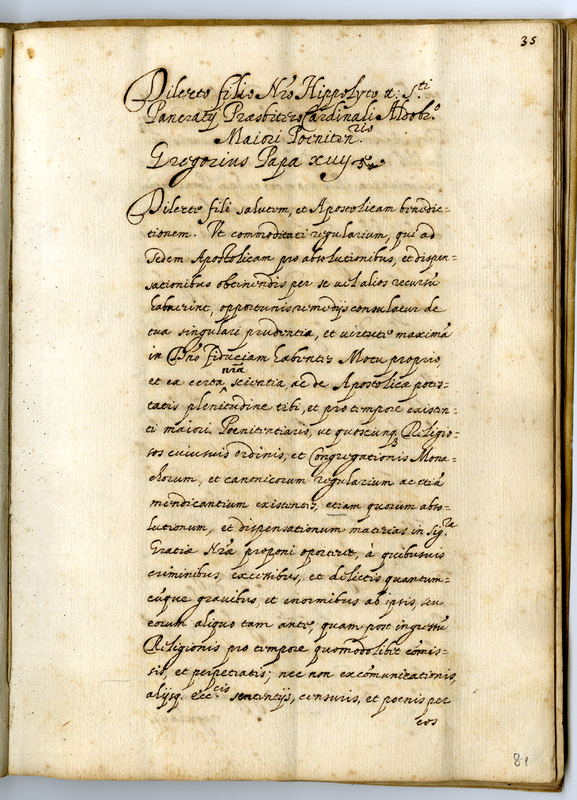 35
Dilecto filio Nro Hippolyto tt: S.ti
Pancratij Præsbitero Cardinali Aldobr.º
Maiori Poeniten.rio
Gregorius Papa XIIIJ
Dilecte fili salutem, et Apostolicam benedic=
tionem. Ut commoditati regularium, qui ad
sedem Apostolicam pro absolutionibus, et dispen=
sationibus obtinendis per se vel alios recursũ
habuerint, opportunis remedijs consulatur de
tua singulari prudentia, et virtute maximã
in Dño fiduciam habentes Motu proprio,
nrã
et ex certa scientia, ac de Apostolicæ potes=
tatis plenitudine tibi, et pro tempore existen=
ti maiori Poenitentiario, ut quoscunq3 Religio=
sos cuiusvis ordinis, et Congregationis Mona=
chorum, et canonicorum regularium ac etiã
mendicantium existentes, etiam quorum abso=
lutionum, et dispensationum materias in sig.ra
Gratiæ Nræ proponi oporteret, à quibusvis
criminibus, excessibus, et delictis quantum=
cũque gravibus, et enormibus ab ipsis, seu
eorum aliquo tam ante, quam post ingressũ
Religionis pro tempore quomodolibet cõmis=
sis, et perpetratis; nec non excõmunicationis,
alijsq. ecc.cis sententijs, censuris, et poenis per
eos
81